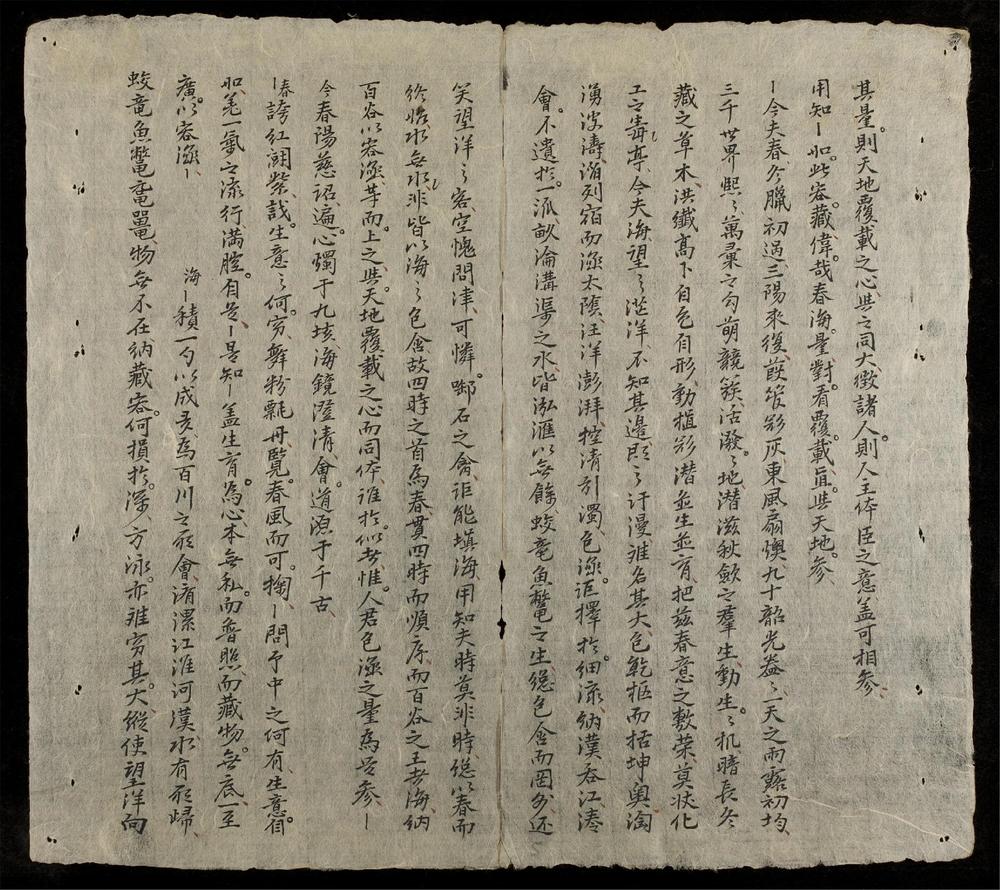 其量則天地覆載之心此之同大徵諸人則人主体臣之意盖可相參
用知丨如此容藏偉哉春海量對看覆載眞些天地參
丨今夫春冬臘初過三陽來復葭管灰東風扇燠九十韶光盎〻一天之雨露初均
三千世界熙〻萬彙之勾萌競簇活潑〻地潜滋秋歛之羣生動生〻机暗長冬
藏之草木洪纖高下自色自形動植形潜並生並育把兹春意之敷荣莫状化
工之毒亭今夫海望之汪洋不知其邊即之汗漫难名其大包乾枢而括坤奥淘
湧波濤涵列宿而涵太陰汪洋澎湃控清引濁包涵詎擇於细流納漢呑江湊
會不遺於一派畎淪溝渠之水皆泓滙以無餘蛟竜魚鱉之生總包含而罔外还
笑望洋之客空愧問津可憐啣石之禽詎能塡海用知夫時莫非時総以春而
終始水無水非皆以海之包含故四時之首為春貫四時而順序而百谷之王者海納
百谷以容涵等而上之與天地覆載之心而同体誰於似者惟人君包涵之量為如參丨
今春陽慈詔遍心燭于九垓海鏡澄清會道源于千古
丨春誇紅闘紫詫生意之何穷舞粉飄丹覧春風而可掬丨問予中之何有生意徊
如羌一氣之流行滿腔自是丨是知丨盖生育為心本無私而普照而藏物無底一至
廣以容涵丨
海丨積一勺以成多為百川之所會淯漯江淮河漢水有所歸
蛟竜魚鱉黿鼉物無不在納藏容何損於深方泳亦难穷其大縱使望洋向